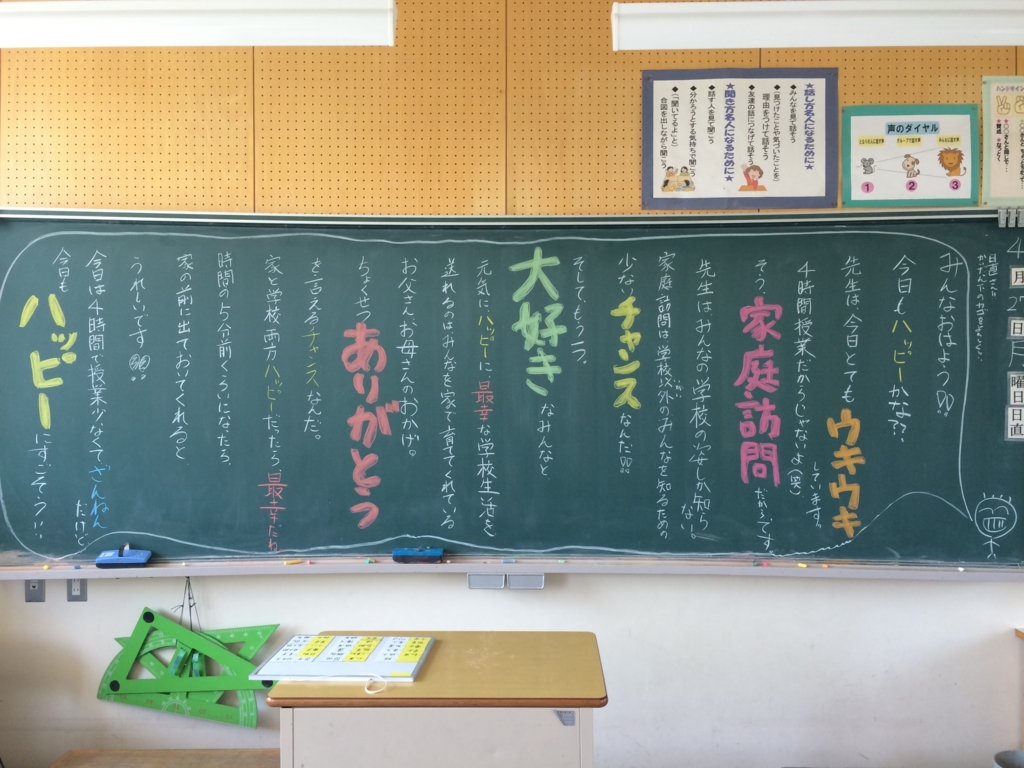 ★話し方名人になるために★
◆みんなを見て話そう
◆(見つけたことや気づいたことを)
理由をつけて話そう
◆友達の話につなげて話そう
★聞き方名人になるために★
◆話す人を見て聞こう
◆分かろうとする気持ちで聞こう
◆(「聞いてるよ」と)
合図を出しながら聞こう
声のダイヤル
1
2
3
みんなおはよう!!
今日もハッピーかな??
先生は今日とても
ウキウキ
しています。
4時間授業だからじゃないよ(笑)
そう、家庭訪問だからです。
先生はみんなの学校の姿しか知らない。
家庭訪問は学校以外のみんなを知るための
チャンスなんだ!!
そしてもう1つ。
大好きなみんなと
元気にハッピーに最幸な学校生活を
送れるのはみんなを家で育ててくれている
お父さん、お母さんのおかげ。
ちょくせつありがとう
を言えるチャンスなんだ。
家と学校両方ハッピーだったら最幸だね
時間の5分前くらいになったら、
家の前に出ておいてくれると
うれしいです!!
今日は4時間で授業少なくてざんねんだけど
今日もハッピーにすごそう!!
4
月
27
日
曜日
日直